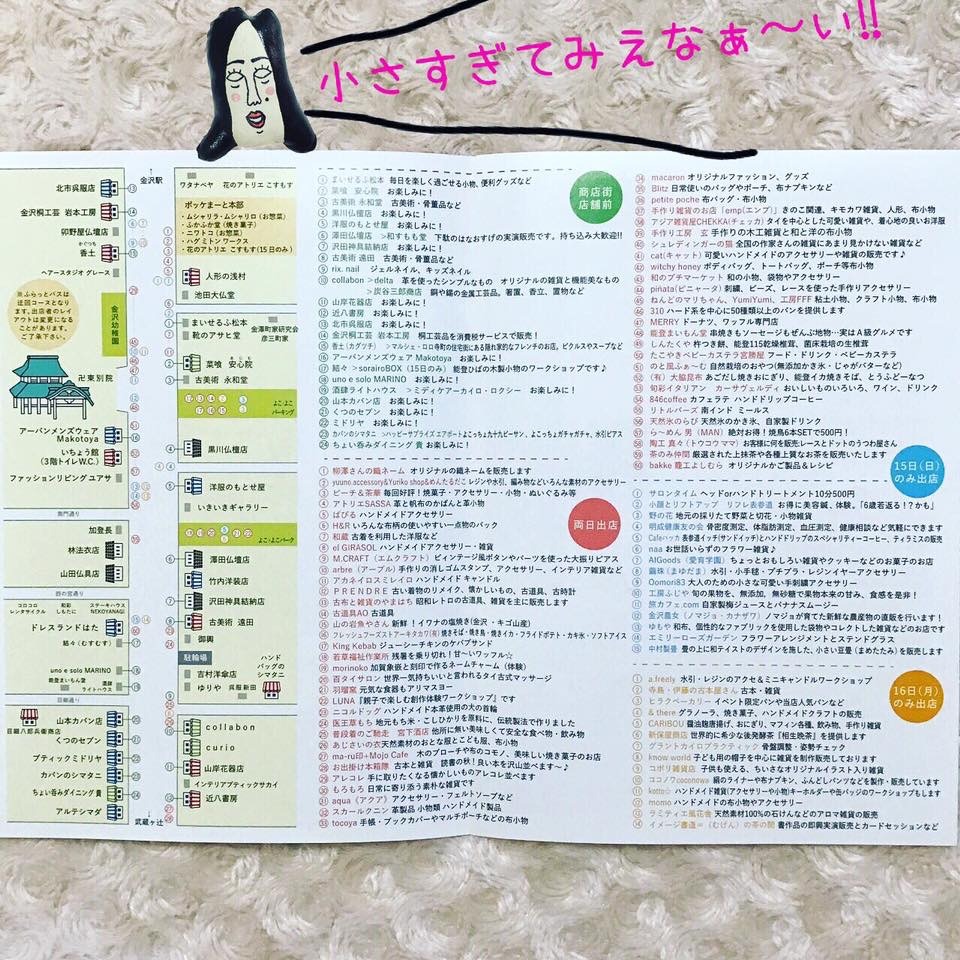 小さすぎてみえなぁ〜い!!
↑
金沢駅
北市呉服店
金沢桐工芸 岩本工房
卯野屋仏壇店
かぐつち
香土
ヘアースタジオ グレース
金沢幼稚園
※ふらっとバスは
迂回コースとなり
ます。出店者のレイ
アウトは変更にな
ることがあります。
ご了承下さい。
卍東別院
アーバンメンズウェア
Makotoya
いちょう館
(3階トイレW.C.)
ファッションリビング ユアサ
加登長
林法衣店
山田仏具店
コロコロ
レンタサイクル
和彩
しもたに
ステーキハウス
NEKOYANAGI
ドレスランドはた
結々(むすむす)
uno e solo MARINO
能登まいもん堂
酒肆
ライトハウス
目細八郎兵衛商店
山本カバン店
くつのセブン
ブティックミドリヤ
カバンのシマタニ
ちょい呑みダイニング 貴
アルテシマダ
武蔵ヶ辻
↓
ワタナベヤ
花のアトリエ こすもす
ポッケまーと本部
・ムシャリラ・ムシャリロ(お惣菜)
・ふかふか堂(焼き菓子)
・ニワトコ(お惣菜)
・ハグミトン ワークス
・花のアトリエ こすもす(15日のみ)
人形の浅村
池田大仏堂
まいせるふ松本
金澤町家研究会
彦三町家
靴のアサヒ堂
菜喰 安心院
古美術 永和堂
よこ・よこ
パーキング
黒川仏檀店
洋服のもとせ屋
いきいきギャラリー
よこ・よこパーク
澤田仏壇店
竹内洋装店
沢田神具結納店
古美術 遠田
御輿
駐輪場
ハンド
バッグの
シマタニ
吉村洋傘店
ゆりや
呉服 新田
collabon
curio
山岸花器店
インテリアブティックサカイ
近八書房
商店街
店舗前
① まいせるふ松本 毎日を楽しく過ごせる小物、便利グッズなど
② 菜喰 安心院 お楽しみに!
③ 古美術 永和堂 古美術・骨董品など
④ 黒川仏檀店 お楽しみに!
⑤ 洋服のもとせ屋 お楽しみに!
⑥ 澤田仏壇店 >和すもも堂 下駄のはなおすげの実演販売です。持ち込み大歓迎!!
⑦ 沢田神具結納店 お楽しみに!
⑧ 古美術 遠田 古美術・骨董品など
⑨ rix. nail ジェルネイル、キッズネイル
⑩ collabon >delta 革を使ったシンプルなもの オリジナルの雑貨と機能美なもの
>炭谷三郎商店 銅や錫の金属工芸品。箸置、香立、置物など
⑪ 山岸花器店 お楽しみに!
⑫ 近八書房 お楽しみに!
⑬ 北市呉服店 お楽しみに!
⑭ 金沢桐工芸 岩本工房 桐工芸品を消費税サービスで販売!
⑮ 香土(カグツチ) >シマルシェ・ロロ 寺町の住宅街にある隠れ家的なフレンチのお店。ピクルスやスープなど
⑯ アーバンメンズウェア Makotoya お楽しみに!
⑰ 結々 >sorairoBOX(15日のみ) 能登ひばの木製小物のワークショップです♪
⑱ uno e solo MARINO お楽しみに!
⑲ 酒肆ライトハウス >ミディケアーカイロ・ロクシー お楽しみに!
⑳ 山本カバン店 お楽しみに!
㉑ くつのセブン お楽しみに!
㉒ ミドリヤ お楽しみに!
㉓ カバンのシマタニ >ハッピーサプライズ エアポートよこっちょ九十九ピーサン、よこっちょガチャガチャ、水引ピアス
㉔ ちょい呑みダイニング 貴 お楽しみに!
両日出店
① 柳澤さんの織ネーム オリジナルの織ネームを販売します
② yuuno.accessory&Yuriko shop&めんたるだこ レジンや水引、編み物などいろんな素材のアクセサリー
③ ピーチ&茶華 毎回好評!焼菓子・アクセサリー・小物・ぬいぐるみ等
④ アトリエSASSA 革と帆布のかばんと革小物
⑤ ぱぴる ハンドメイドアクセサリー
⑥ H&R いろんな布柄の使いやすい一点物のバック
⑦ 和蔵 古着を利用した洋服など
⑧ el GIRASOL ハンドメイドアクセサリー・雑貨
⑨ M.CRAFT(エムクラフト) ビィンテージ風ボタンやパーツを使った大振りピアス
⑩ arbre(アーブル) 手作りの消しゴムスタンプ、アクセサリー、インテリア雑貨など
⑪ アカネイロスミレイロ ハンドメイド キャンドル
⑫ PRENDRE 古い着物のリメイク、懐かしいもの、古道具、古時計
⑬ 古布と雑貨のやまはち 昭和レトロの道具、雑貨を主に販売します
⑭ 古道具AO 古道具
⑮ 山の岩魚やさん 新鮮!イワナの塩焼き(金沢・キゴ山産)
⑯ フレッシュフーズストアーキタカワ(有) 焼きそば・焼き鳥・焼きイカ・フライドポテト・カキ氷・ソフトアイス
⑰ King Kebab ジューシーチキンのケバブサンド
⑱ 若草福祉作業所 残暑を乗り切れ!甘〜いワッフル☆
⑲ morinoko 加賀象嵌と刻印で作るネームチャーム(体験)
⑳ 百タイサロン 世界一気持ちいいと言われるタイ古式マッサージ
㉑ 羽瑠窯 元気な食器もアリマスヨー
㉒ LUNA 『親子で楽しむ創作体験ワークショップ』です
㉓ ニコルドッグ ハンドメイド本革使用の犬の首輪
㉔ 医王草もち 地元もち米・こしひかりを原料に、伝統製法で作りました
㉕ 普段着のご馳走 宮下酒店 他所に無い美味しくて安全な食べ物・飲み物
㉖ あじさいの衣 天然素材のおとな服とこども服、布小物
㉗ ma-ru印+Mojo Cafe 木のブローチや布のコモノ、美味しい焼き菓子のお店
㉘ お出掛け本箱隊 古本と雑貨 読書の秋!良い本を沢山並べます〜♪
㉙ アレコレ 手に取りたくなる懐かしいものアレコレ並べます
㉚ もろもろ 日常に寄り添う素朴な雑貨です
㉛ aqua(アクア) アクセサリー・フェルトソープなど
㉜ スカールクニン 革製品 小物類 ハンドメイド製品
㉝ tocoya 手帳・ブックカバーやマルチポーチなどの布小物
㉞ macaron オリジナルファッション、グッズ
㉟ Blitz 日常使いのバッグやポーチ、布ナプキンなど
㊱ petite poche 布バッグ・布小物
㊲ 手作り雑貨のお店「emp(エンプ)」 きのこ関連、キモカワ雑貨、人形、布小物
㊳ アジア雑貨屋CHEKKA(チェッカ) タイを中心とした可愛い雑貨や、着心地の良いお洋服
㊴ 手作り工房 玄 手作りの木工雑貨と和と洋の布小物
㊵ シュレディンガーの猫 全国の作家さんの雑貨にあまり見かけない雑貨など
㊶ cat(キャット) 可愛いハンドメイドのアクセサリーや雑貨の販売です♪
㊷ witchy honey ボディバッグ、トートバッグ、ポーチ等布小物
㊸ 和のプチマーケット 和の小物、袋物やアクセサリー
㊹ piñata(ピニャータ) 刺繍、ビーズ、レースを使った手作りアクセサリー
㊺ ねんどのマリちゃん、YumiYumi、工房FFF 粘土小物、クラフト小物、布小物
㊻ 310 ハード系を中心に50種類以上のパンを提供します
㊼ MERRY ドーナツ、ワッフル専門店
㊽ 能登まいもん堂 串焼きもソーセージもぜんぶ地物…実はA級グルメです
㊾ しんたくや 杵つき餅、能登115乾燥椎茸、菌床栽培の生椎茸
㊿ たこやきベビーカステラ宮勝屋 フード・ドリンク・ベビーカステラ
51 のと風ふぁ〜む 自然栽培のおやつ(無添加かき氷・じゃがバターなど)
52 (有)大脇昆布 あごだし焼きおにぎり、能登イカ焼きそば、とうふどーなつ
53 旬彩イタリアン カーサヴェルディ おいしいものいろいろ、ワイン、ドリンク
54 846coffee カフェラテ ハンドドリップコーヒー
55 リトルバーズ 南インド ミールス
56 天然氷のらび 天然氷のかき氷、自家製ドリンク
57 ら〜めん 男(MAN) 絶対お得!焼鳥6本SETで500円!
58 陶工 真々(トウコウ ママ) お客様に何を販売レースとドットのうつわ屋さん
59 茶のみ仲間 厳選された上抹茶や各種上質なお茶を販売いたします
60 bakke 籠工よしむら オリジナルかご製品&レシピ
15日(日)
のみ出店
① サロンタイム ヘッドorハンドトリートメント10分500円
② 小顔とリフトアップ リフレ表参道 お得に美容鍼、体験。「6歳若返る!?かも」
③ 野の花 地元の採りたて野菜と切花・小物雑貨
④ 明成健康友の会 骨密度測定、体脂肪測定、血圧測定、健康相談など気軽にできます
⑤ Cafeハッカ 表参道イチ(サンドイッチ)とハンドドリップのスペシャリティーコーヒー、ティラミスの販売
⑥ naa お世話いらずのフラワー雑貨♪
⑦ AIGoods(愛育学園) ちょっとおもしろい雑貨やクッキーなどのお菓子のお店
⑧ 繭珠(まゆだま) 水引・小手毬・プチプラ・レジンイヤーアクセサリー
⑨ Oomori83 大人のための小さな可愛い手刺繍アクセサリー
⑩ 工房ふじや 旬の果物を、無添加、無砂糖で果物本来の甘み、食感を是非!
⑪ 旅カフェ.com 自家製梅ジュースとバナナスムージー
⑫ 金沢農女(ノマジョ・カナザワ) ノマジョが育てた新鮮な農産物の直販を行います!
⑬ ゆもや 和布、個性的なファブリックを使用した袋物やコレクトした雑貨などのお店です
⑭ エミリーローズガーデン フラワーアレンジメントとステンドグラス
⑮ 中村製畳 畳の上に和テイストのデザインを施した、小さい豆畳(まめたたみ)を販売します
16日(月)
のみ出店
① a.freely 水引・レジンのアクセ&ミニキャンドルワークショップ
② 寺島・伊藤の古本屋さん 古本・雑貨
③ ヒラクベーカリー イベント限定パンや当店人気パンなど
④ & there グラノーラ、焼き菓子、ハンドメイドクラフトの販売
⑤ CARIBOU 醤油麹唐揚げ、おにぎり、マフィン各種、飲み物、手作り雑貨
⑥ 新保屋商店 世界的に希少な後発酵茶『相生晩茶』を提供します
⑦ グラントカイロプラクティック 骨盤調整・姿勢チェック
⑧ know world 子ども用の帽子を中心に雑貨を制作販売しております
⑨ コポリ雑貨店 子供も使える、ちいさなオリジナルイラスト入り雑貨
⑩ ココノワcoconowa 絹のライナーや布ナプキン、ふんどしパンツなどを製作・販売しています
⑪ kotto☆ ハンドメイド雑貨(アクセサリーや小物)キーホルダーや缶バッジのワークショップもします
⑫ momo ハンドメイドの布小物やアクセサリー
⑬ ラミティエ風花舎 天然素材100%の石けんなどのアロマ雑貨の販売
⑭ イメージ書道=(むげん)の茶の間 書作品の即興実演販売とカードセッションなど